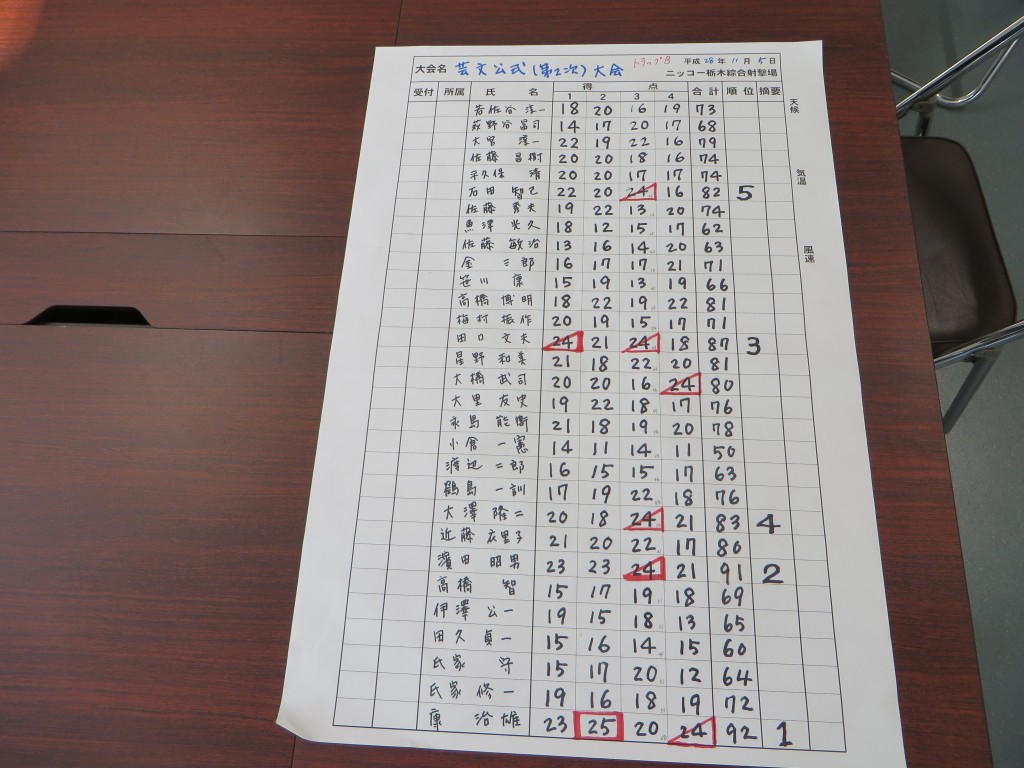 トラップB 平成 28 年 11 月 5 日
大会名 芸文公式(第2次)大会 ニッコー栃木綜合射撃場
受付 所属 氏 名 得 点 合計 順位 摘要
1 2 3 4
天候
気温
風速
若佐谷 淳一 18 20 16 19 73
荻野谷 昌司 14 17 20 17 68
大宮 淳一 22 19 22 16 79
佐藤 昌樹 20 20 18 16 74
平久保 清 20 20 17 17 74
石田 智己 22 20 24 16 82 5
佐藤 秀夫 19 22 13 20 74
魚津 栄久 18 12 15 17 62
佐藤 敏治 13 16 14 20 63
金 三郎 16 17 17 21 71
笹川 康 15 19 13 19 66
高橋 博明 18 22 19 22 81
梅村 振作 20 19 15 17 71
田口 文夫 24 21 24 18 87 3
星野 和美 21 18 22 20 81
大橋 武司 20 20 16 24 80
大里 友史 19 22 18 17 76
永島 能衛 21 18 19 20 78
小倉 一憲 14 11 14 11 50
渡辺 二郎 16 15 15 17 63
鶴島 一訓 17 19 22 18 76
大澤 隆二 20 18 24 21 83 4
近藤 衣里子 21 20 22 17 80
濱田 昭男 23 23 24 21 91 2
高橋 智 15 17 19 18 69
伊澤 公一 19 15 18 13 65
田久 貞一 15 16 14 15 60
氏家 守 15 17 20 12 64
氏家 修一 19 16 18 19 72
康 治雄 23 25 20 24 92 1